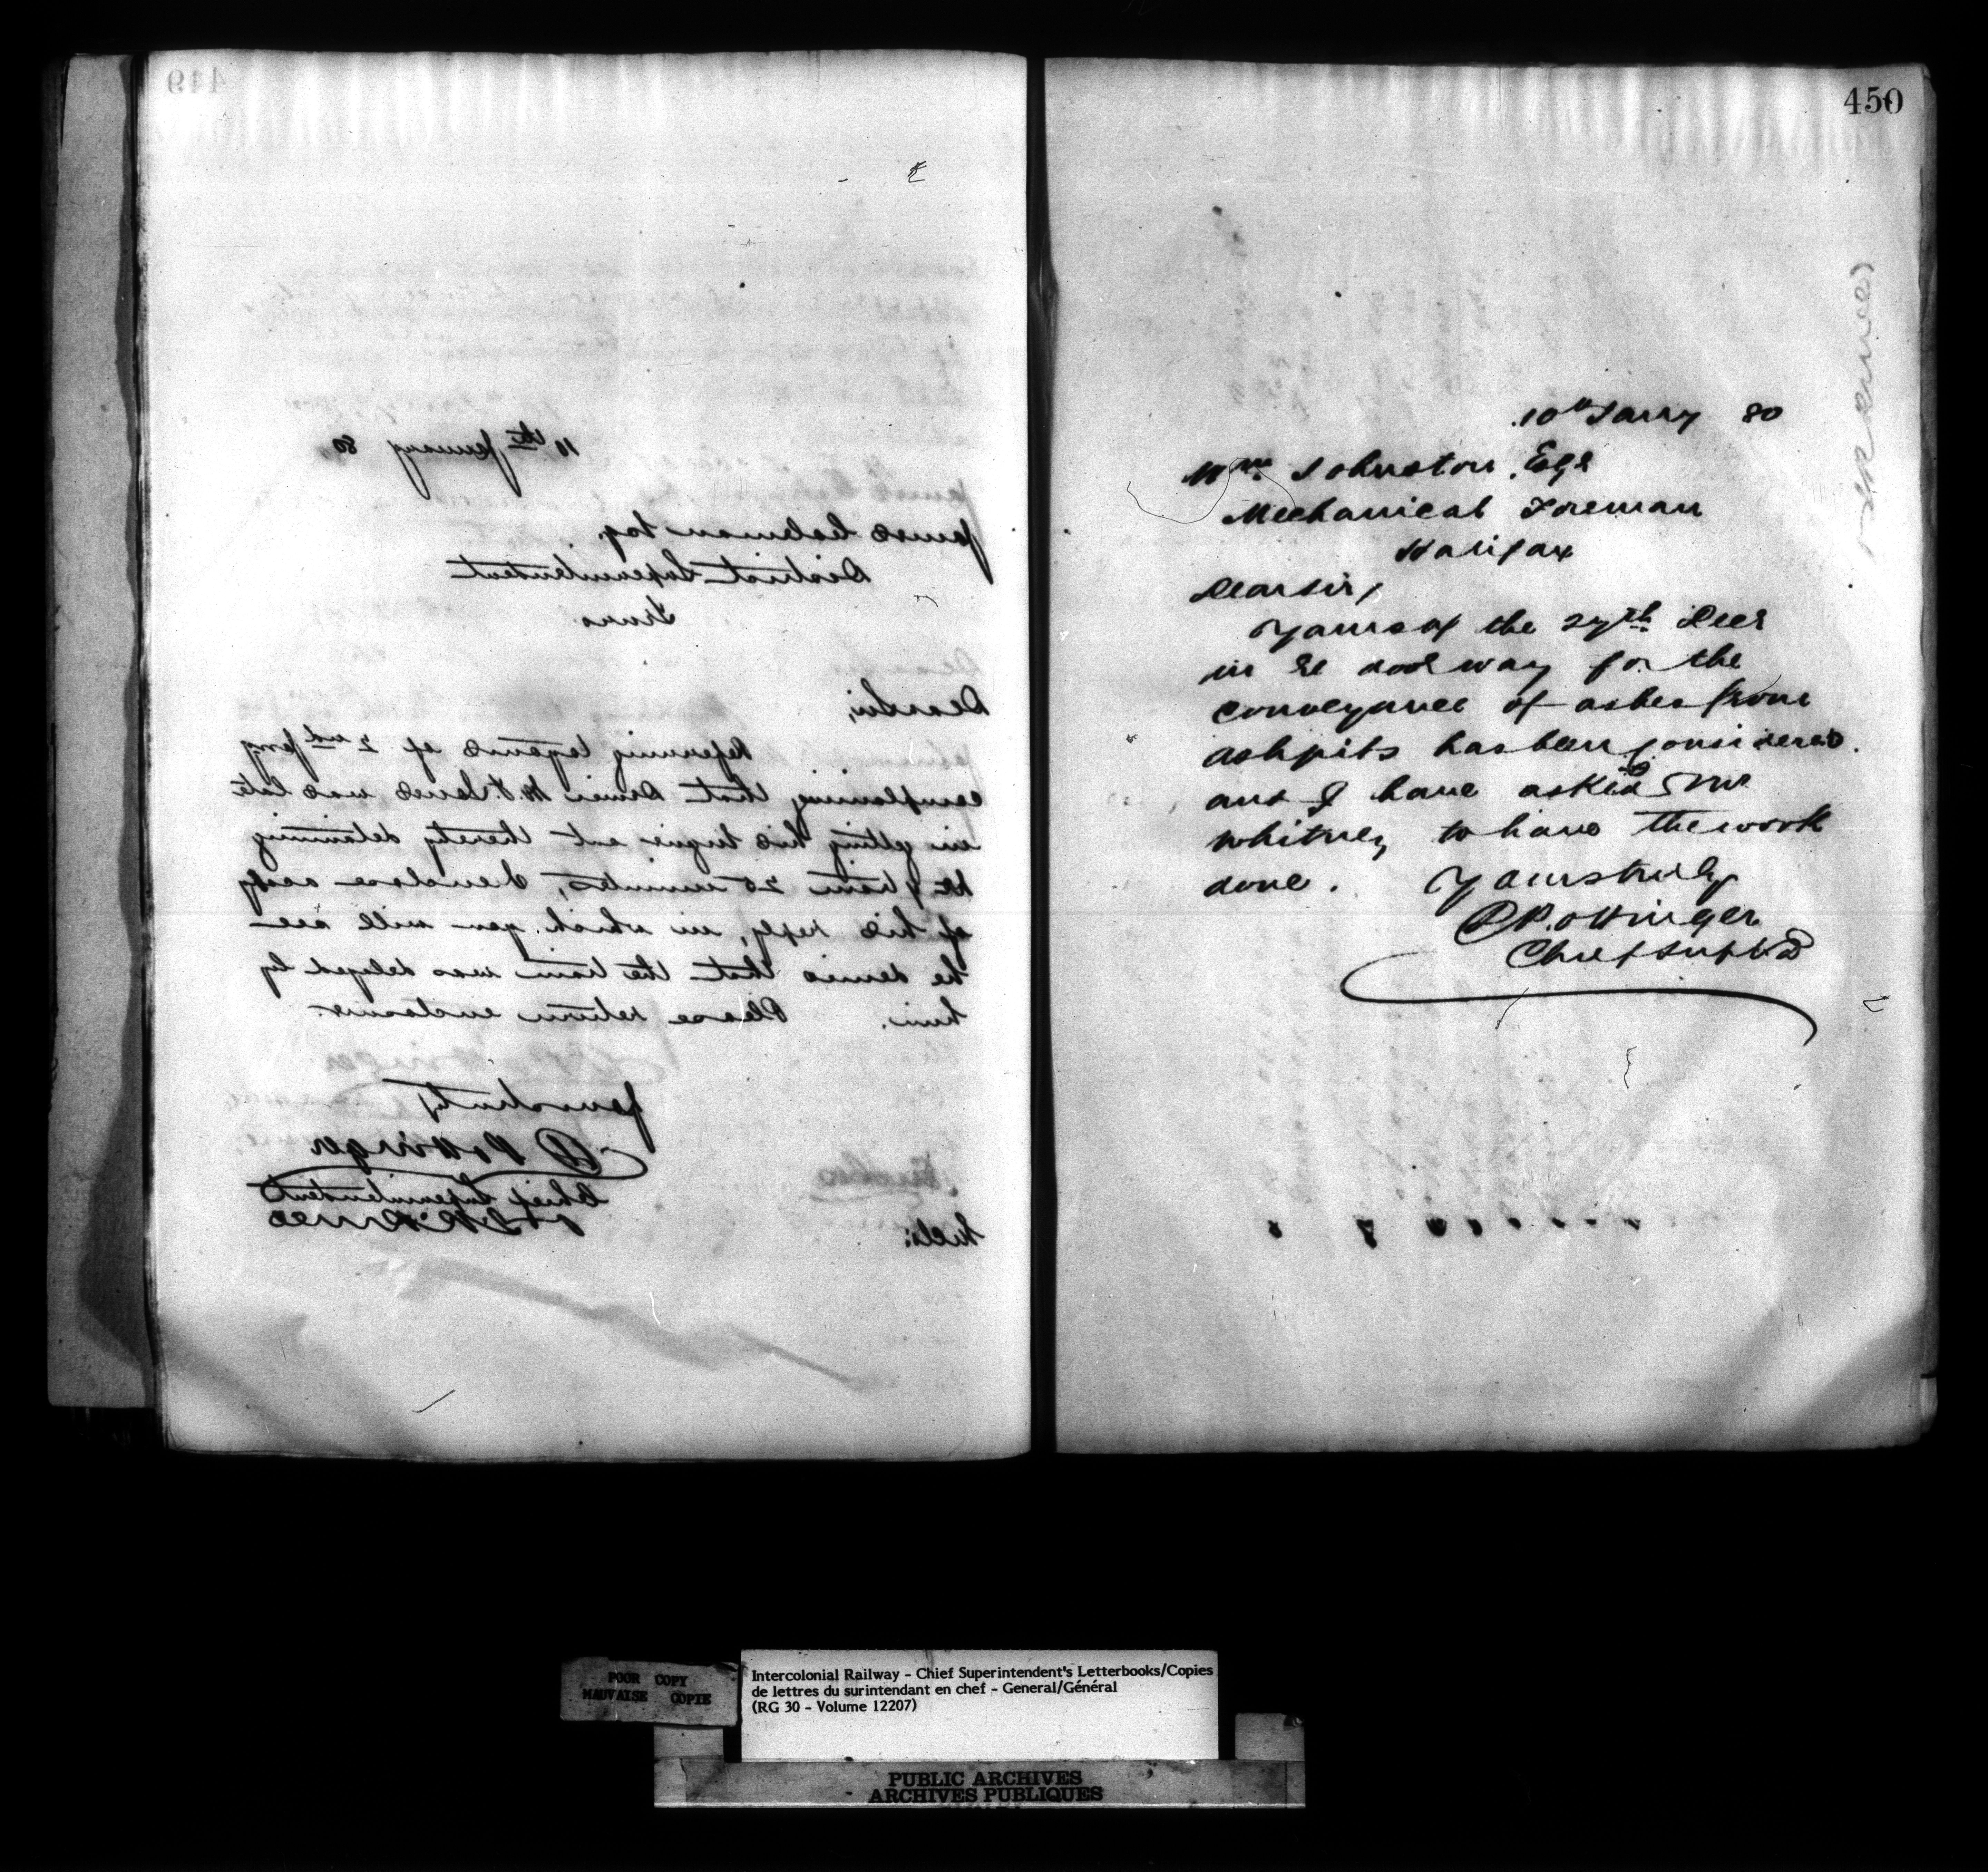 449
10th January 80
James Coleman Esq.
District Superintendent
Truro
Dear Sir,
Referring to yours of 2nd Jany
complaining that Driver was late
in getting his Engine out thereby detaining
train 20 minutes, I enclose a copy
of his reply, in which you will see
he denies that the train was delayed by
him. Please return enclosure.
Yours truly
D Pottinger
Chief Superintendent
450
10th Janry 80
Wm. Johnston, Esqr
Mechanical Foreman
Halifax
Dear Sir,
Yours of the 27th Decr
in re road way for the
conveyance of ashes from
ashpits has been considered.
and I have asked Mr
Whitney to have the work
done. Yours truly
D Pottinger
Chief Supt
POOR COPY
MAUVAISE COPIE
Intercolonial Railway - Chief Superintendent's Letterbooks/Copies
de lettres du surintendant en chef - General/Général
(RG 30 - Volume 12207)
PUBLIC ARCHIVES
ARCHIVES PUBLIQUES